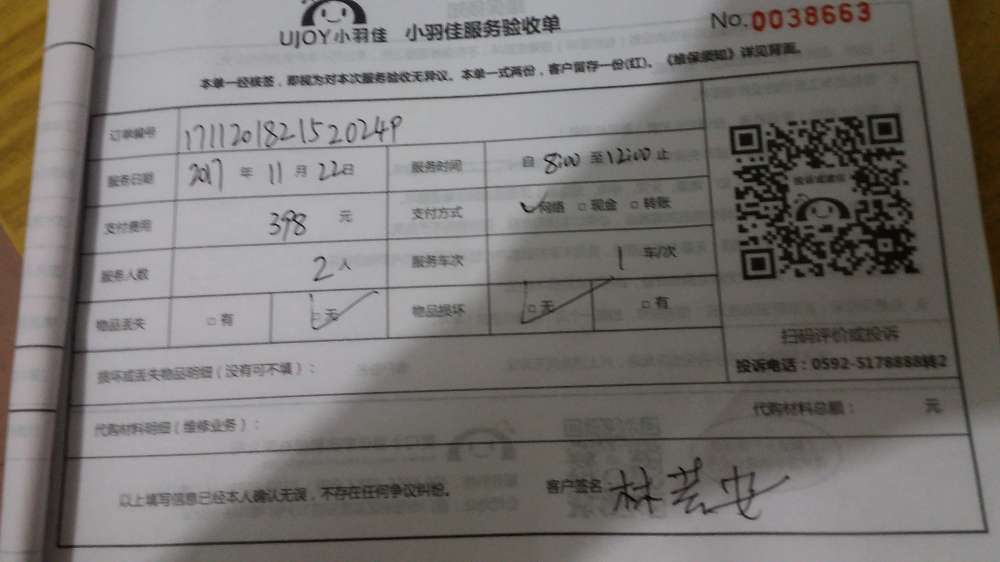 UJOY小羽佳 小羽佳服务验收单 No.0038663
本单一经核签，即视为对本次服务验收无异议。本单一式两份，客户留存一份(红)。《维保须知》详见背面。
订单编号 1711201821520249
服务日期 2017 年 11 月 22日 服务时间 自 8:00 至 12:00 止
支付费用 398 元 支付方式 网络 □现金 □转账
服务人数 2 人 服务车次 1 车/次
物品丢失 □有 □无 物品损坏 □无 □有
投诉或建议
扫码评价或投诉
投诉电话：0592-5178888转2
损坏或丢失物品明细（没有可不填）：
代购材料明细（维修业务）： 代购材料总额： 元
以上填写信息已经本人确认无误，不存在任何争议纠纷。 客户签名 林芸安